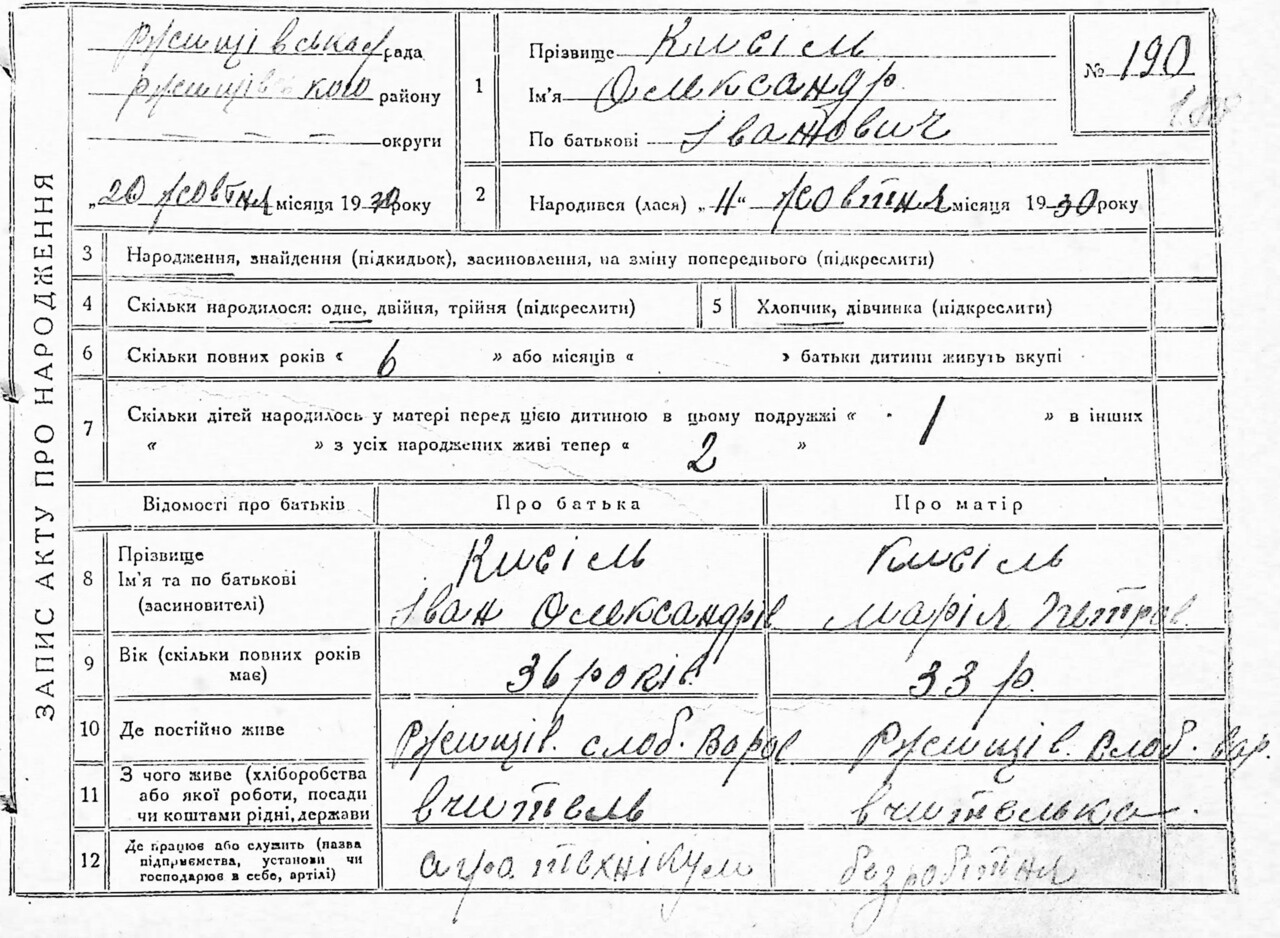 ЗАПИС АКТУ ПРО НАРОДЖЕННЯ
Ржищівська рада
Ржищівського району
округи
„20 жовтня місяця 1930 року
1 Прізвище Кисіль
Ім'я Олександр
По батькові Іванович
№ 190
2 Народився (лася) „11“ жовтня місяця 1930 року
3 Народження, знайдення (підкидьок), засиновлення, на зміну попереднього (підкреслити)
4 Скільки народилося: одне, двійня, трійня (підкреслити) 5 Хлопчик, дівчинка (підкреслити)
6 Скільки повних років « 6 » або місяців « » батьки дитини живуть вкупі
7 Скільки дітей народилось у матері перед цією дитиною в цьому подружжі « 1 » в інших
« » з усіх народжених живі тепер « 2 »
Відомості про батьків Про батька Про матір
8 Прізвище Кисіль Кисіль
Ім'я та по батькові
(засиновителі) Іван Олександрів Марія Петров
9 Вік (скільки повних років
має) 36 років 33 р.
10 Де постійно живе Ржищів. слоб. Воров Ржищів. слоб. Вор.
11 З чого живе (хліборобства
або якої роботи, посади
чи коштами рідні, держави вчитель вчителька
12 Де працює або служить (назва
підприємства, установи чи
господарює в себе, артілі) агротехнікум безробітня